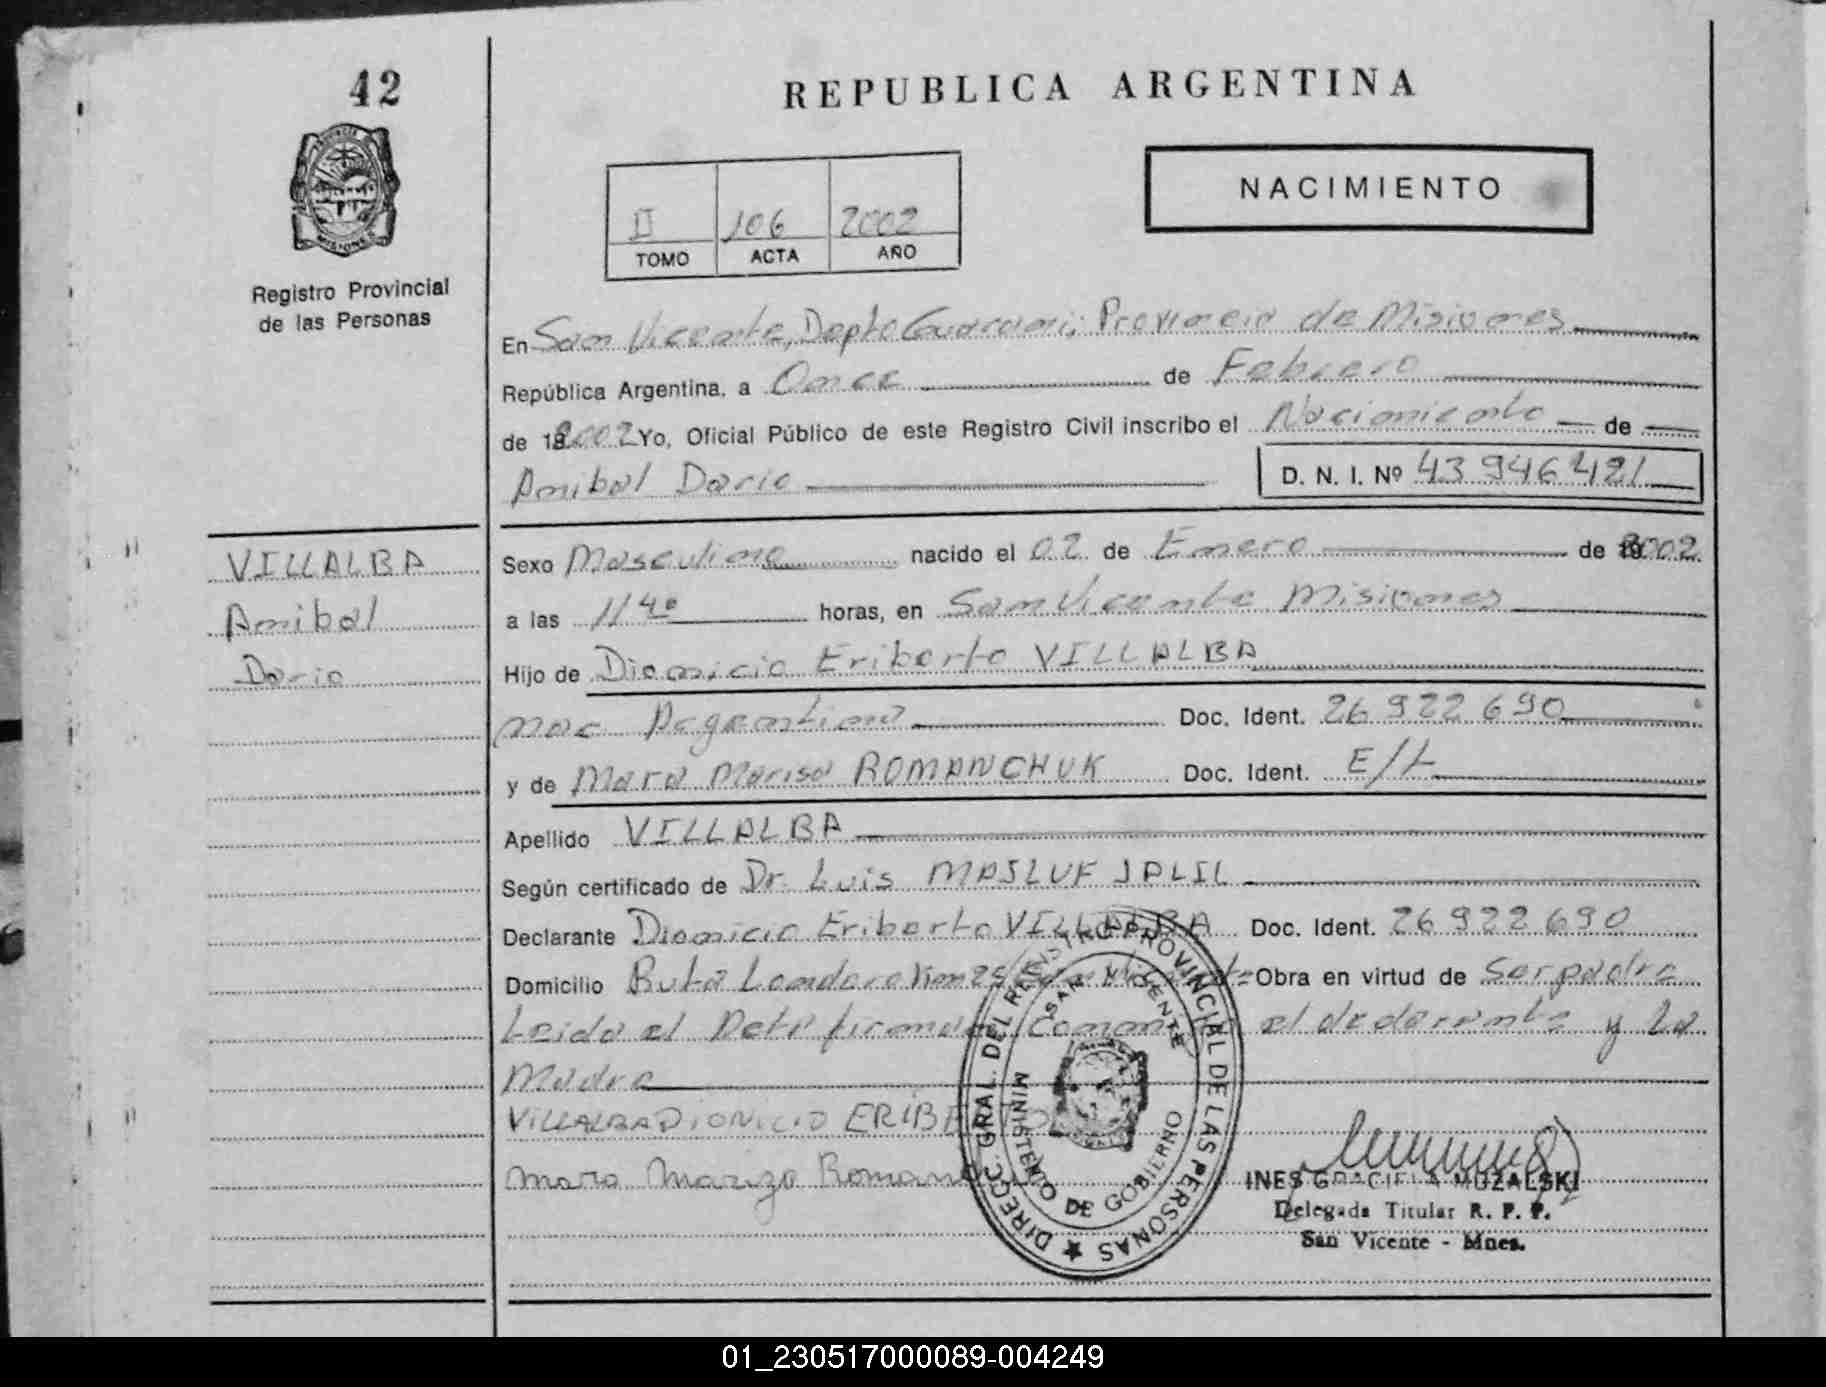 42
REPUBLICA ARGENTINA
NACIMIENTO
II 106 2002
TOMO ACTA AÑO
Registro Provincial
de las Personas
En San Vicente, Depto Guarani; Provincia de Misiones
República Argentina, a Once de Febrero
de 2002 Yo, Oficial Público de este Registro Civil inscribo el Nacimiento de
Anibal Dario D. N. I. Nº 43 946 421
VILLALBA
Anibal
Dario
Sexo Masculino nacido el 02 de Enero de 2002
a las 11 40 horas, en San Vicente Misiones
Hijo de Dionicio Eriberto VILLALBA
nac Argentino Doc. Ident. 26 922 690
y de Mara Marisa ROMANCHUK Doc. Ident. E/T
Apellido VILLALBA
Según certificado de Dr. Luis MASLUF JALIL
Declarante Dionicio Eriberto VILLALBA Doc. Ident. 26 922 690
Domicilio Ruta San Vicente Obra en virtud de Ser padre
Leida el Acta firman el declarante y la
Madre
VILLALBA DIONICIO ERIBERTO
Mara Mariza Roman
DIRECC. GRAL. DEL REGISTRO PROVINCIAL DE LAS PERSONAS
SAN VICENTE
MINISTERIO DE GOBIERNO
INES GRACIELA MUZALSKI
Delegada Titular R. P. P.
San Vicente - Mnes.
01_230517000089-004249